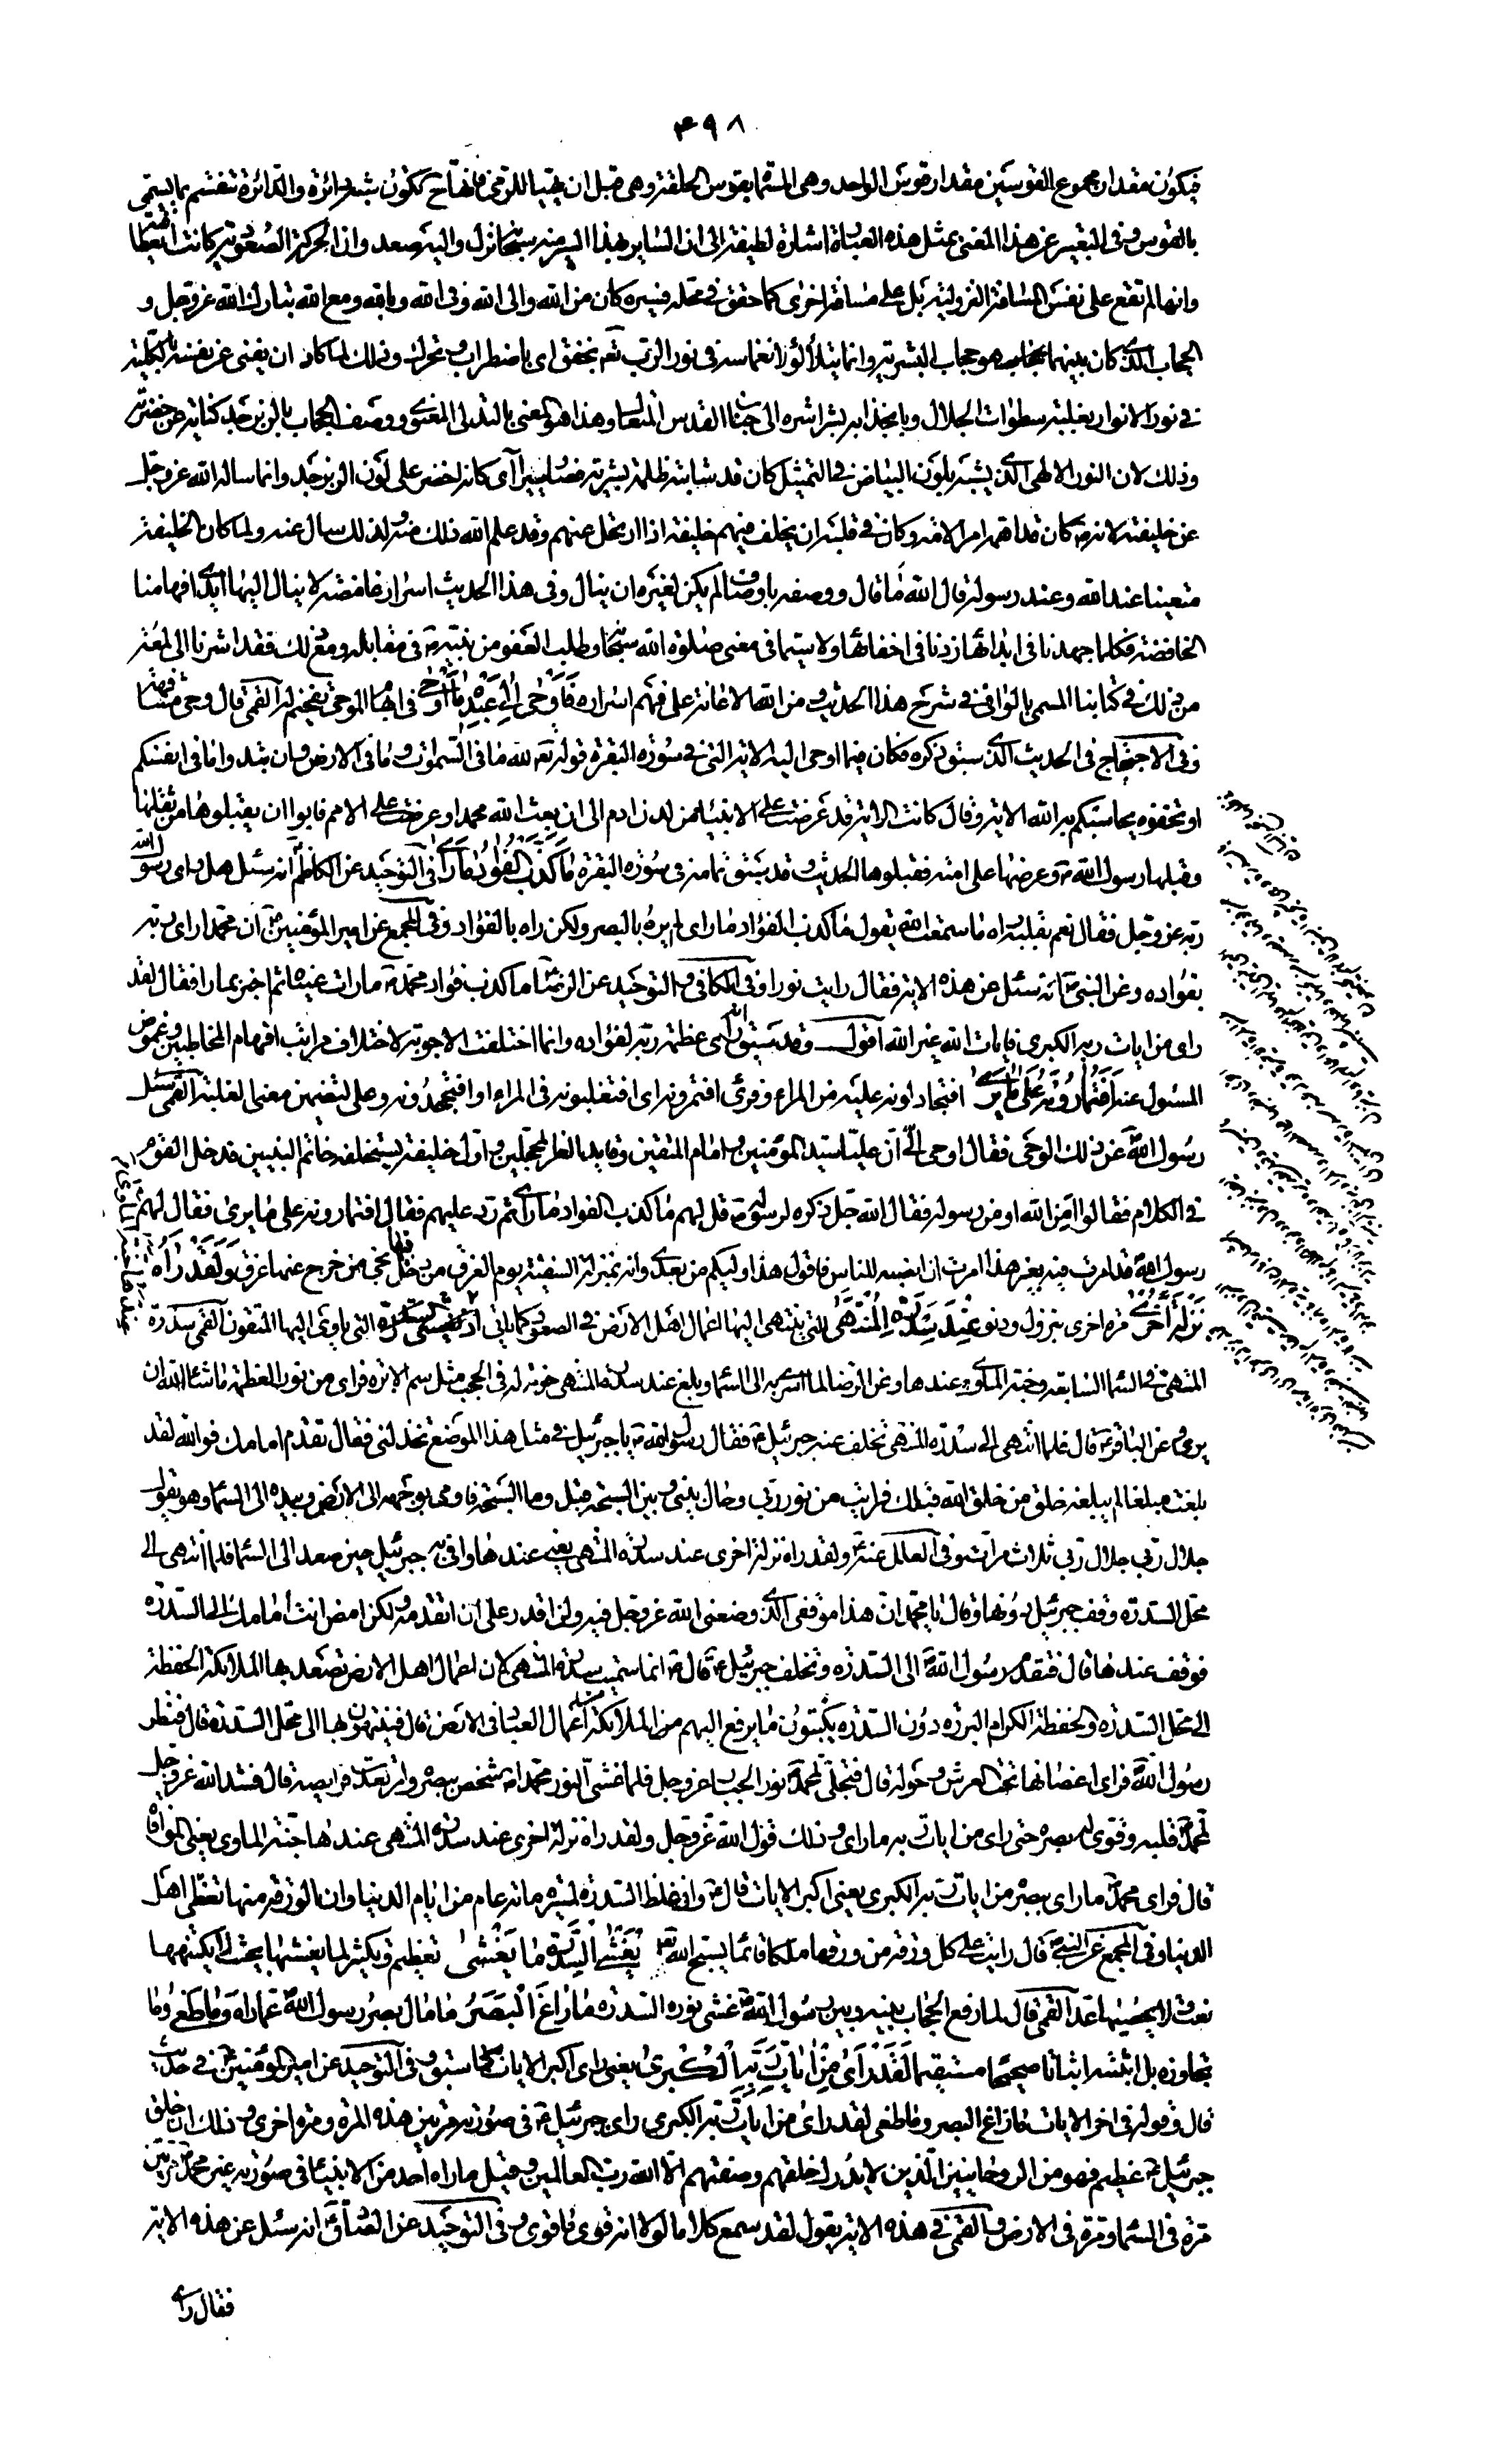 ۴۹۸
فيكون مقدار مجموع القوسين مقدار قوس الواحد وهى المسماة بقوس الحلقة وهى قبل ان يهيأ للرمى فانها ح تكون شبه دائرة والدائرة تنقسم بما يسمى
بالقوس وفى التعبير عن هذا المعنى بمثل هذه العبارة اشارة لطيفة الى ان السائر بهذا السير منه سبحانه نزل واليه صعد وان الحركة الصعودية كانت انعطافية
وانها لم تقع على نفس المسافة النزولية بل على مسافة اخرى كما حقق فى محله فسيره كان من الله والى الله وفى الله وبالله ومع الله تبارك الله عز وجل و
الحجاب الذى كان بينهما هو حجاب البشرية وانما يتلألؤ لانغماسه فى نور الرب تعه بخفق اى باضطراب وتحرك وذلك لما كاد ان يفنى عن نفسه بالكلية
فى نور الانوار بغلبة سطوات الجلال وبانجذابه بشراشره الى جناب القدس المتعال وهذا هو المعنى بالتدلى المعنوى ووصف الحجاب بالزبرجد كناية عن خضرته
وذلك لان النور الالهى الذى يشبه بلون البياض فى التمثيل كان قد شابته ظلمة بشرية فصار يتراءى كانه اخضر على لون الزبرجد وانما ساله الله عز وجل
عن خليفته لانه كان قد اهمه امر الامة وكان فى قلبه ان يخلف فيهم خليفة اذا ارتحل عنهم وقد علم الله ذلك منه ولذلك سال عنه ولما كان الخليفة
متعينا عند الله وعند رسوله قال الله ما قال ووصفه باوصاف لم يكن لغيره ان ينال وفى هذا الحديث اسرار غامضة لا ينال اليها ايدى افهامنا
الخافضة فكلما جهدنا فى ابدائها زدنا فى اخفائها ولا سيما فى معنى صلوة الله سبحانه وطلب العفو من نبيه فى مقابله ومع ذلك فقد اشرنا الى لمعة
من ذلك فى كتابنا المسمى بالوافى فى شرح هذا الحديث ومن الله الاعانة على فهم اسراره فَأَوْحَى إِلَى عَبْدِهِ مَا أَوْحَى فى ابهام الموحى تفخيم له القمى قال وحى مشافهة
وفى الاحتجاج فى الحديث الذى سبق ذكره فكان فيما اوحى اليه الاية التى فى سورة البقرة قوله تعه لله ما فى السموات وما فى الارض وان تبدوا ما فى انفسكم
او تخفوه يحاسبكم به الله الاية وقال كانت الاية قد عرضت على الانبياء من لدن ادم الى ان بعث الله محمدا وعرضت على الامم فابوا ان يقبلوها من ثقلها
وقبلها رسول الله وعرضها على امته فقبلوها الحديث وقد سبق تمامه فى سورة البقرة مَا كَذَبَ الْفُؤَادُ مَا رَأَى فى التوحيد عن الكاظم انه سئل هل راى رسول الله
ربه عز وجل فقال نعم بقلبه راه ما سمعت الله يقول ما كذب الفؤاد ما راى لم يره بالبصر ولكن راه بالفؤاد وفى المجمع عن امير المؤمنين ان محمدا راى ربه
بفؤاده وعن النبى انه سئل عن هذه الاية فقال رايت نورا وفى الكافى والتوحيد عن الرضا ما كذب فؤاد محمد ما رات عيناه ثم اخبر بما راى فقال لقد
راى من ايات ربه الكبرى فايات الله غير الله اقول وقد سبق انه راى عظمة ربه لفؤاده وانما اختلفت الاجوبة لاختلاف مراتب افهام المخاطبين وغموض
المسئول عنه أَفَتُمَارُونَهُ عَلَى مَا يَرَى افتجادلونه عليه من المراء وقرئ افتمرونه اى افتغلبونه فى المراء او افتجحدونه وعلى لتضمين معنى الغلبة القمى سئل
رسول الله عن ذلك الوحى فقال اوحى الى ان عليا سيد المؤمنين وامام المتقين وقايد الغر المحجلين واول خليفة يستخلفه خاتم النبيين فدخل القوم
فى الكلام فقالوا امن الله او من رسوله فقال الله جل ذكره لرسوله قل لهم ما كذب الفؤاد ما راى ثم رد عليهم فقال افتمارونه على ما يرى فقال لهم
رسول الله قد امرت فيه بغير هذا امرت ان انصبه للناس فاقول هذا وليكم من بعدى وانه بمنزلة السفينة يوم الغرق من دخل فيها نجى ومن خرج عنها غرق وَلَقَدْ رَآهُ
نَزْلَةً أُخْرَى مرة اخرى بنزول ودنو عِنْدَ سِدْرَةِ الْمُنْتَهَى التى ينتهى اليها اعمال اهل الارض فى الصعود كما ياتى التى ياوى اليها المتقون القمى سدرة
المنتهى فى السماء السابعة وجنة الماوى عندها وعن الرضا لما اسرى به الى السماء وبلغ عند سدرة المنتهى خرق له فى الحجب مثل سم الابرة فراى من نور العظمة ما شاء الله ان
يرى وعن الباقر قال فلما انتهى الى سدرة المنتهى تخلف عنه جبرئيل فقال رسول الله يا جبرئيل فى مثل هذا الموضع تخذلنى فقال تقدم امامك فوالله لقد
بلغت مبلغا لم يبلغه خلق من خلق الله قبلك فرايت من نور ربى وحال بينى وبين السبحة قيل وما السبحة فاومى بوجهه الى الارض وبيده الى السماء وهو يقول
جلال ربى جلال ربى ثلاث مرات وفى العلل عنه ولقد راه نزلة اخرى عند سدرة المنتهى يعنى عندها وافى به جبرئيل حين صعد الى السماء فلما انتهى الى
محل السدرة وقف جبرئيل دونها وقال يا محمد ان هذا موقفى الذى وضعنى الله عز وجل فيه ولن اقدر على ان اتقدمه ولكن امض انت امامك الى السدرة
فوقف عندها قال فتقدم رسول الله الى السدرة وتخلف جبرئيل قال انما سميت سدرة المنتهى لان اعمال اهل الارض تصعد بها الملائكة الحفظة
الى محل السدرة والحفظة الكرام البررة دون السدرة يكتبون ما يرفع اليهم من الملائكة من اعمال العباد فى الارض قال فينتهون بها الى محل السدرة قال فنظر
رسول الله فراى اغصانها تحت العرش وحوله قال فتجلى لمحمد نور الجبار عز وجل فلما غشى النور محمدا شخص ببصره وارتعدت فرايصه قال فشد الله عز وجل
لمحمد قلبه وقوى له بصره حتى راى من ايات ربه ما راى وذلك قول الله عز وجل ولقد راه نزلة اخرى عند سدرة المنتهى عندها جنة الماوى يعنى الموافاة
قال فراى محمد ما راى ببصره من ايات ربه الكبرى يعنى اكبر الايات قال وان غلظ السدرة لمسيرة مائة عام من ايام الدنيا وان الورقة منها تغطى اهل
الدنيا وفى المجمع عن النبى قال رايت على كل ورقة من ورقها ملكا قائما يسبح الله تعه إِذْ يَغْشَى السِّدْرَةَ مَا يَغْشَى تعظيم وتكثير لما يغشيها بحيث لا يكتنهها
نعت ولا يحصيها عد القمى قال لما رفع الحجاب بينه وبين رسول الله غشى نوره السدرة مَا زَاغَ الْبَصَرُ ما مال بصر رسول الله عما راه وَمَا طَغَى وما
تجاوزه بل اثبته اثباتا صحيحا مستيقنا لَقَدْ رَأَى مِنْ آيَاتِ رَبِّهِ الْكُبْرَى يعنى راى اكبر الايات كما سبق وفى التوحيد عن امير المؤمنين فى حديث
قال وقوله فى اخر الايات ما زاغ البصر وما طغى لقد راى من ايات ربه الكبرى راى جبرئيل فى صورته مرتين هذه المرة ومرة اخرى وذلك ان خلق
جبرئيل عظيم فهو من الروحانيين الذين لا يدرك خلقهم وصفتهم الا الله رب العالمين وقيل ما راه احد من الانبياء فى صورته غير محمد مرتين
مرة فى السماء ومرة فى الارض والقمى فى هذه الاية يقول لقد سمع كلاما لولا انه قوى ما قوى وفى التوحيد عن الصادق انه سئل عن هذه الاية
فقال راى